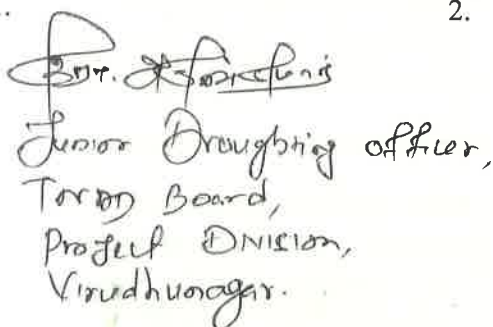 2.
Junior Draughting officer,
TWAD Board,
Project Division,
Virudhunagar.